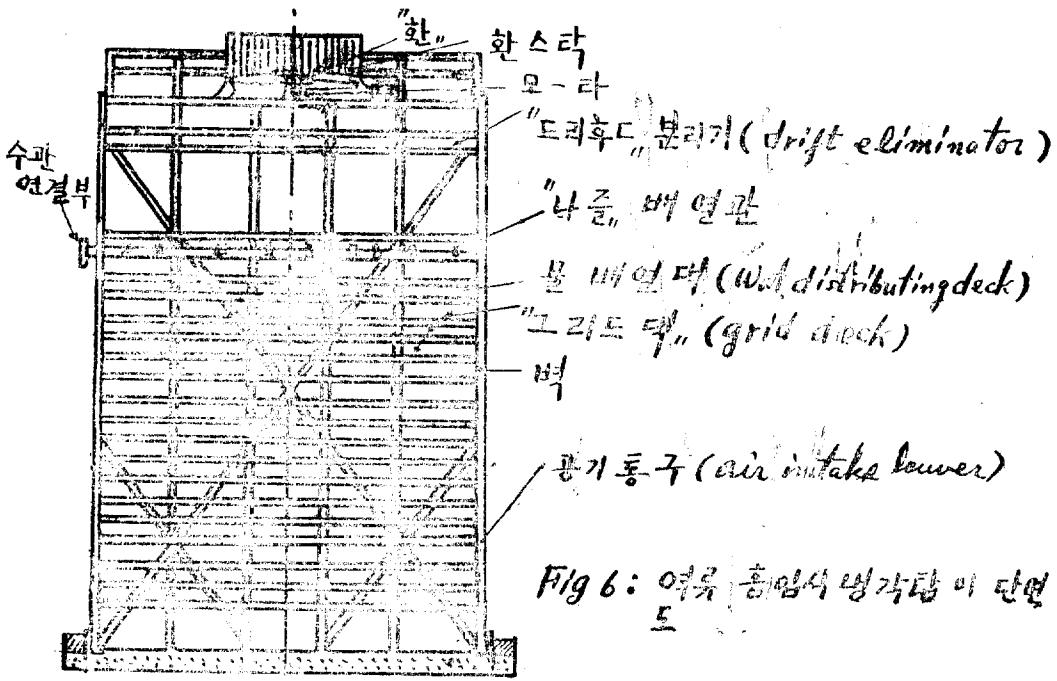 "환„
환스탁
모-타
"드리후드„ 분리기 (drift eliminator)
수관
연결부
"나즐„ 배열관
물 배열대 (Wat distributing deck)
"그리드 덱„ (grid deck)
벽
공기통구 (air intake louver)
Fig 6: 역류 흡입식 냉각탑의 단면
도